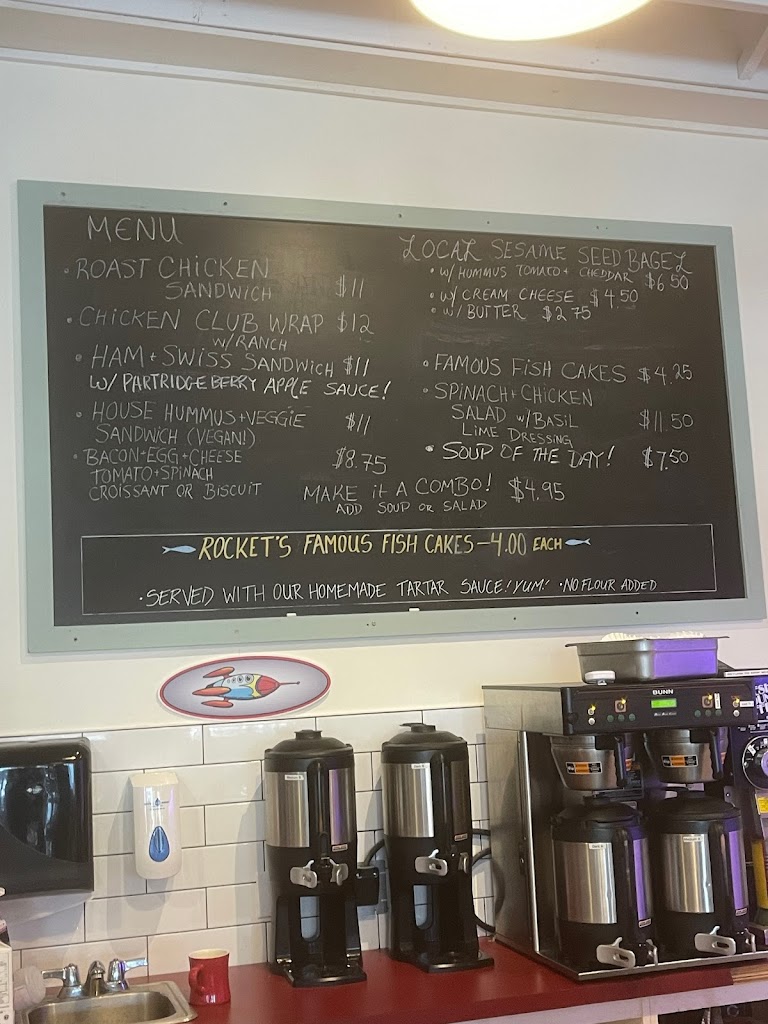 MENU
• ROAST CHICKEN
SANDWICH $11
• CHICKEN CLUB WRAP $12
W/RANCH
• HAM + SWISS SANDWICH $11
W/ PARTRIDGEBERRY APPLE SAUCE!
• HOUSE HUMMUS + VEGGIE $11
SANDWICH (VEGAN!)
• BACON + EGG + CHEESE $8.75
TOMATO + SPINACH
CROISSANT OR BISCUIT
LOCAL SESAME SEED BAGEL
• W/ HUMMUS TOMATO + CHEDDAR $6.50
• W/ CREAM CHEESE $4.50
• W/ BUTTER $2.75
• FAMOUS FISH CAKES $4.25
• SPINACH + CHICKEN
SALAD W/ BASIL $11.50
LIME DRESSING
• SOUP OF THE DAY! $7.50
MAKE it A COMBO! $4.95
ADD SOUP OR SALAD
ROCKET'S FAMOUS FISH CAKES—4.00 EACH
• SERVED WITH OUR HOMEMADE TARTAR SAUCE! YUM! • NO FLOUR ADDED
BUNN